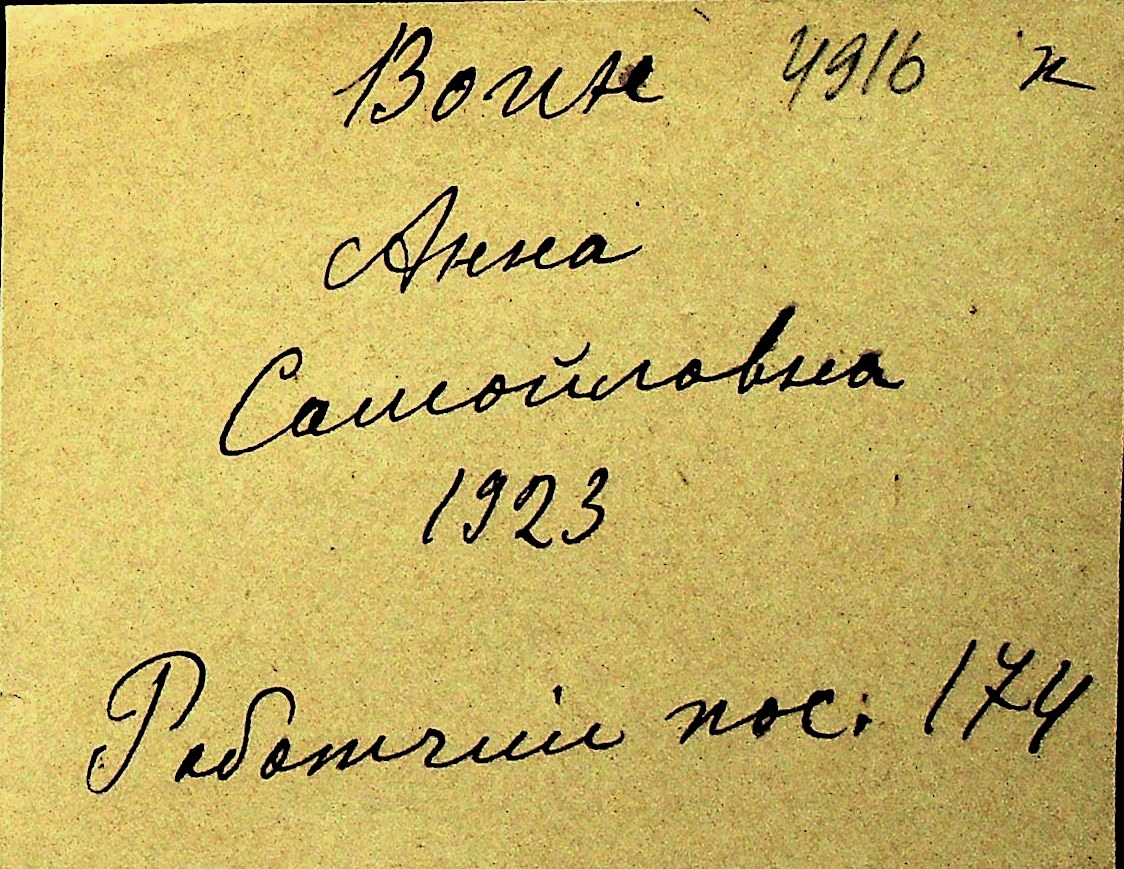 Воин 4916 к
Анна
Самойловна
1923
Рабочий пос. 174